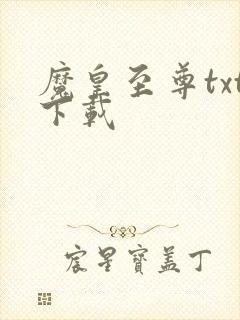 魔皇至尊txt
下载
宸星寶盖丁